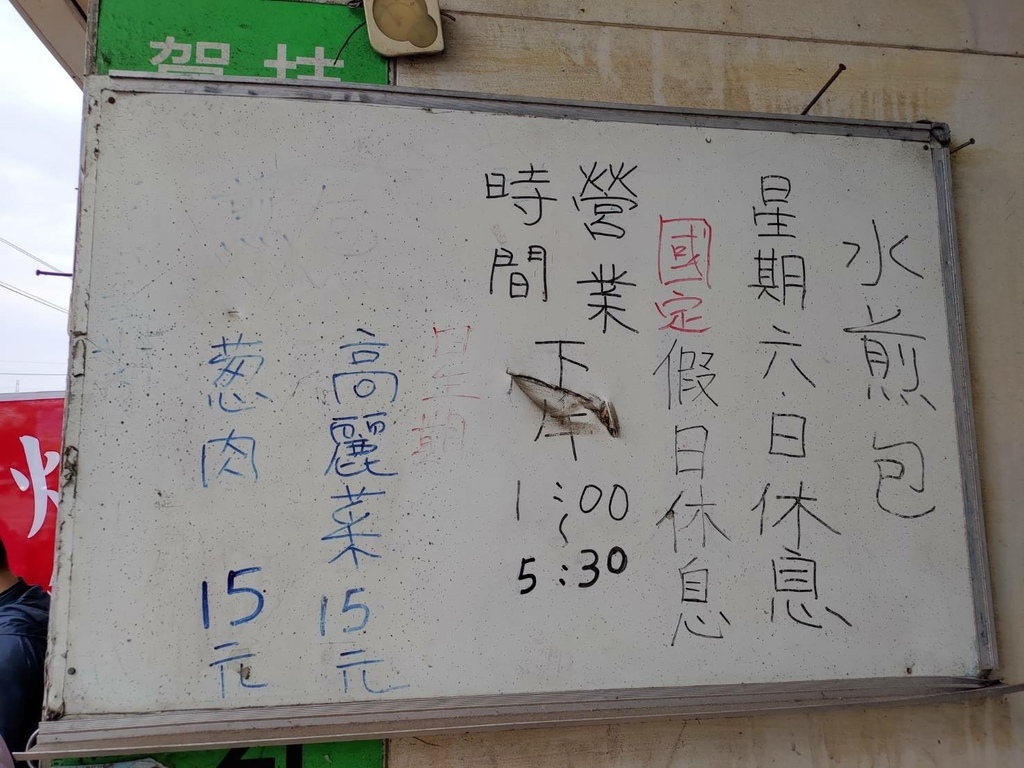 水煎包
星期六.日休息
國定假日休息
營業
時間
下午
1:00
~
5:30
高麗菜15元
葱肉 15元